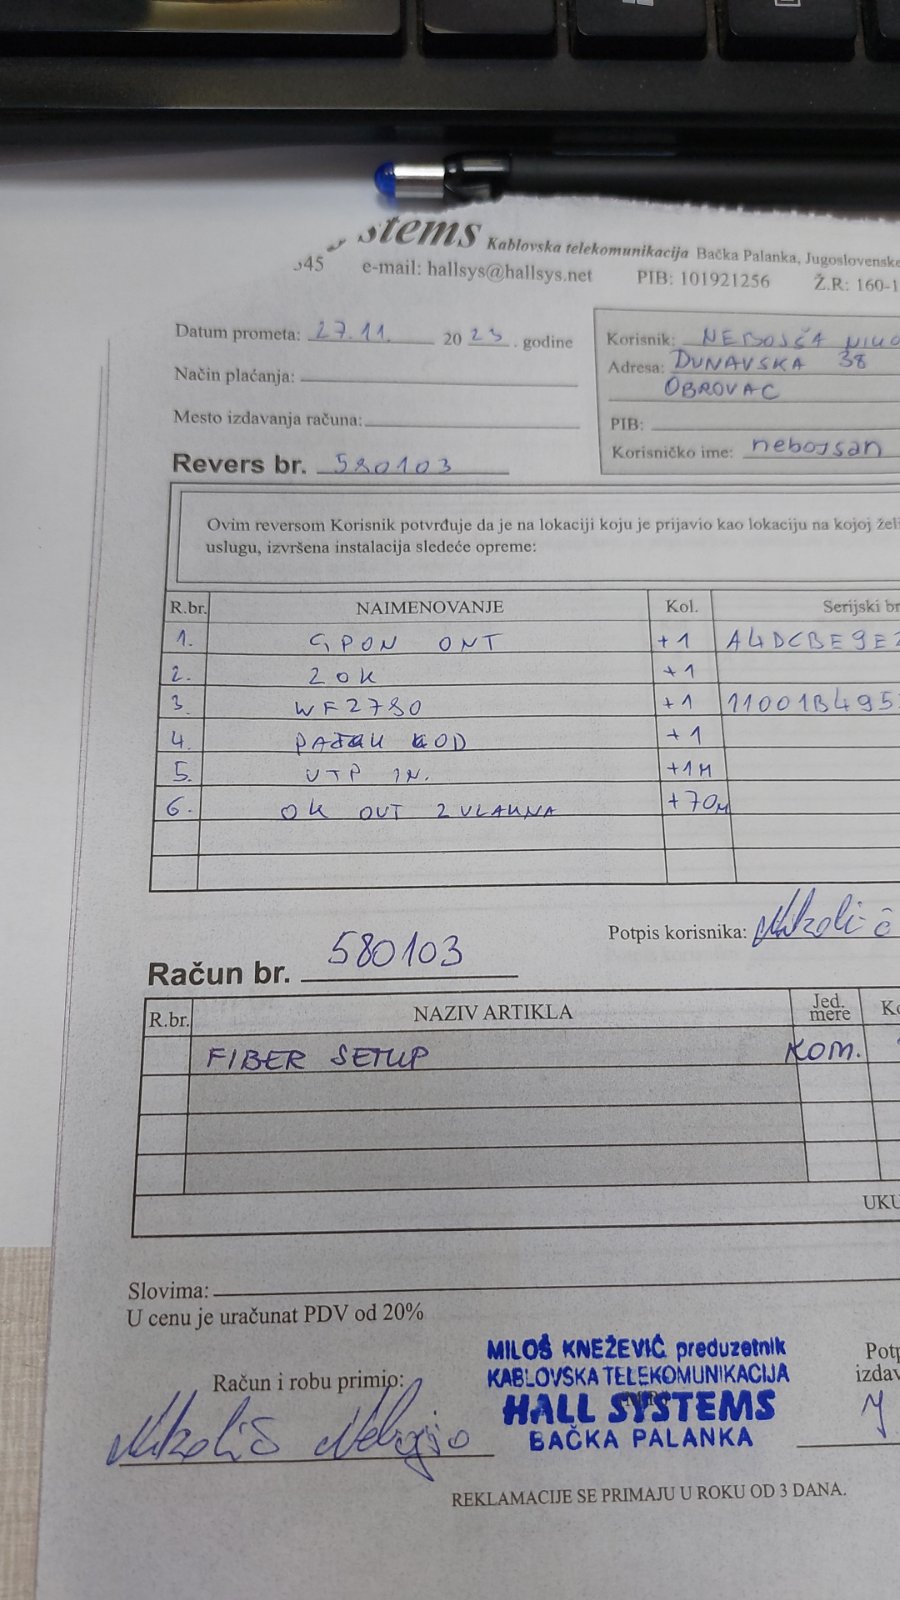 stems Kablovska telekomunikacija Bačka Palanka, Jugoslovenske
345 e-mail: hallsys@hallsys.net PIB: 101921256 Ž.R: 160-1
Datum prometa: 27.11. 20 23. godine
Način plaćanja:
Mesto izdavanja računa:
Revers br. 580103
Korisnik: NEBOJŠA NIKO
Adresa: DUNAVSKA 38
OBROVAC
PIB:
Korisničko ime: nebojsan
Ovim reversom Korisnik potvrđuje da je na lokaciji koju je prijavio kao lokaciju na kojoj žel
uslugu, izvršena instalacija sledeće opreme:
R.br. NAIMENOVANJE Kol. Serijski br
1. GPON ONT +1 A4DCBE9E2
2. 2OK +1
3. WF2780 +1 11001B495
4. KOD +1
5. UTP IN. +1M
6. OK OUT 2 VLAKNA +70M
Potpis korisnika: Nikolić
Račun br. 580103
R.br. NAZIV ARTIKLA Jed. mere Ko
FIBER SETUP KOM.
UKU
Slovima:
U cenu je uračunat PDV od 20%
MILOŠ KNEŽEVIĆ preduzetnik
KABLOVSKA TELEKOMUNIKACIJA
HALL SYSTEMS
BAČKA PALANKA
Račun i robu primio:
Nikolić
Potp
izdav
REKLAMACIJE SE PRIMAJU U ROKU OD 3 DANA.